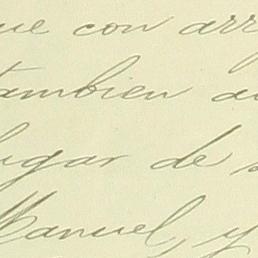 que con arr
tambien a
lugar de s
Manuel, y